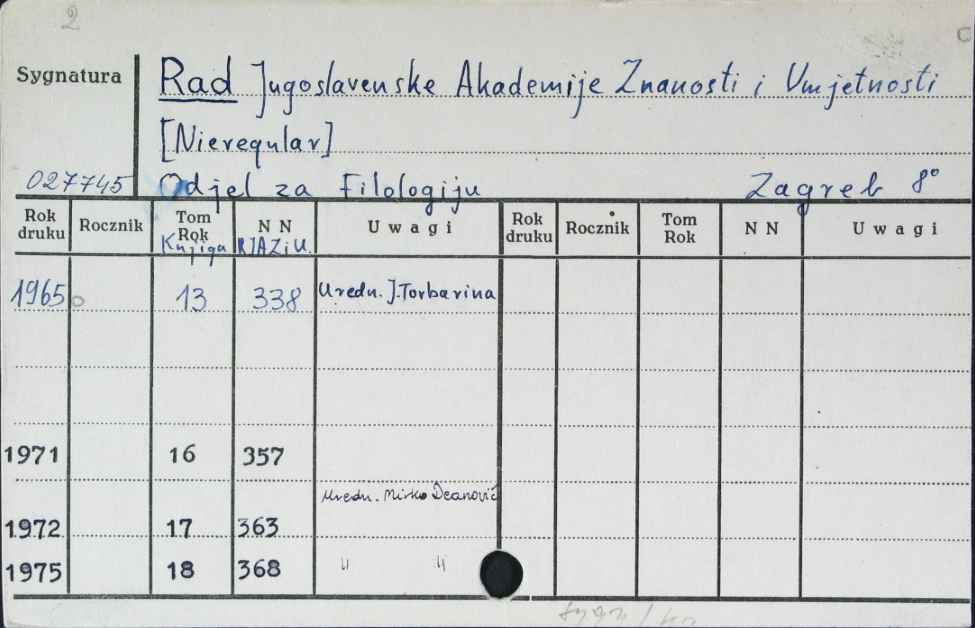 2
C
Sygnatura
Rad Jugoslavenske Akademije Znanosti i Umjetnosti
[Nieregular]
027745 Odjel za Filologiju Zagreb 8°
Rok druku Rocznik Tom Rok Knjiga N N RJAZiU. Uwagi Rok druku Rocznik Tom Rok N N Uwagi
1965 13 338 Uredn. J. Torbarina
1971 16 357
Uredn. Mirko Deanović
1972 17 363
1975 18 368 " "